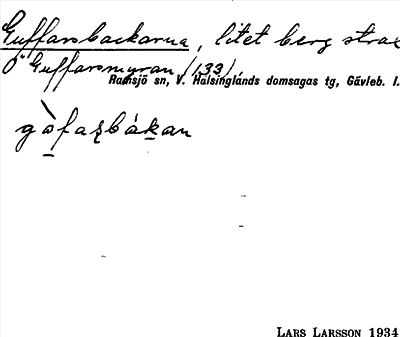 Guffarsbackarna, litet berg strax
Ö Guffarsmyran (133)
Ramsjö sn, V. Hälsinglands domsagas tg, Gävleb. l.
gòfaʂbákan
LARS LARSSON 1934